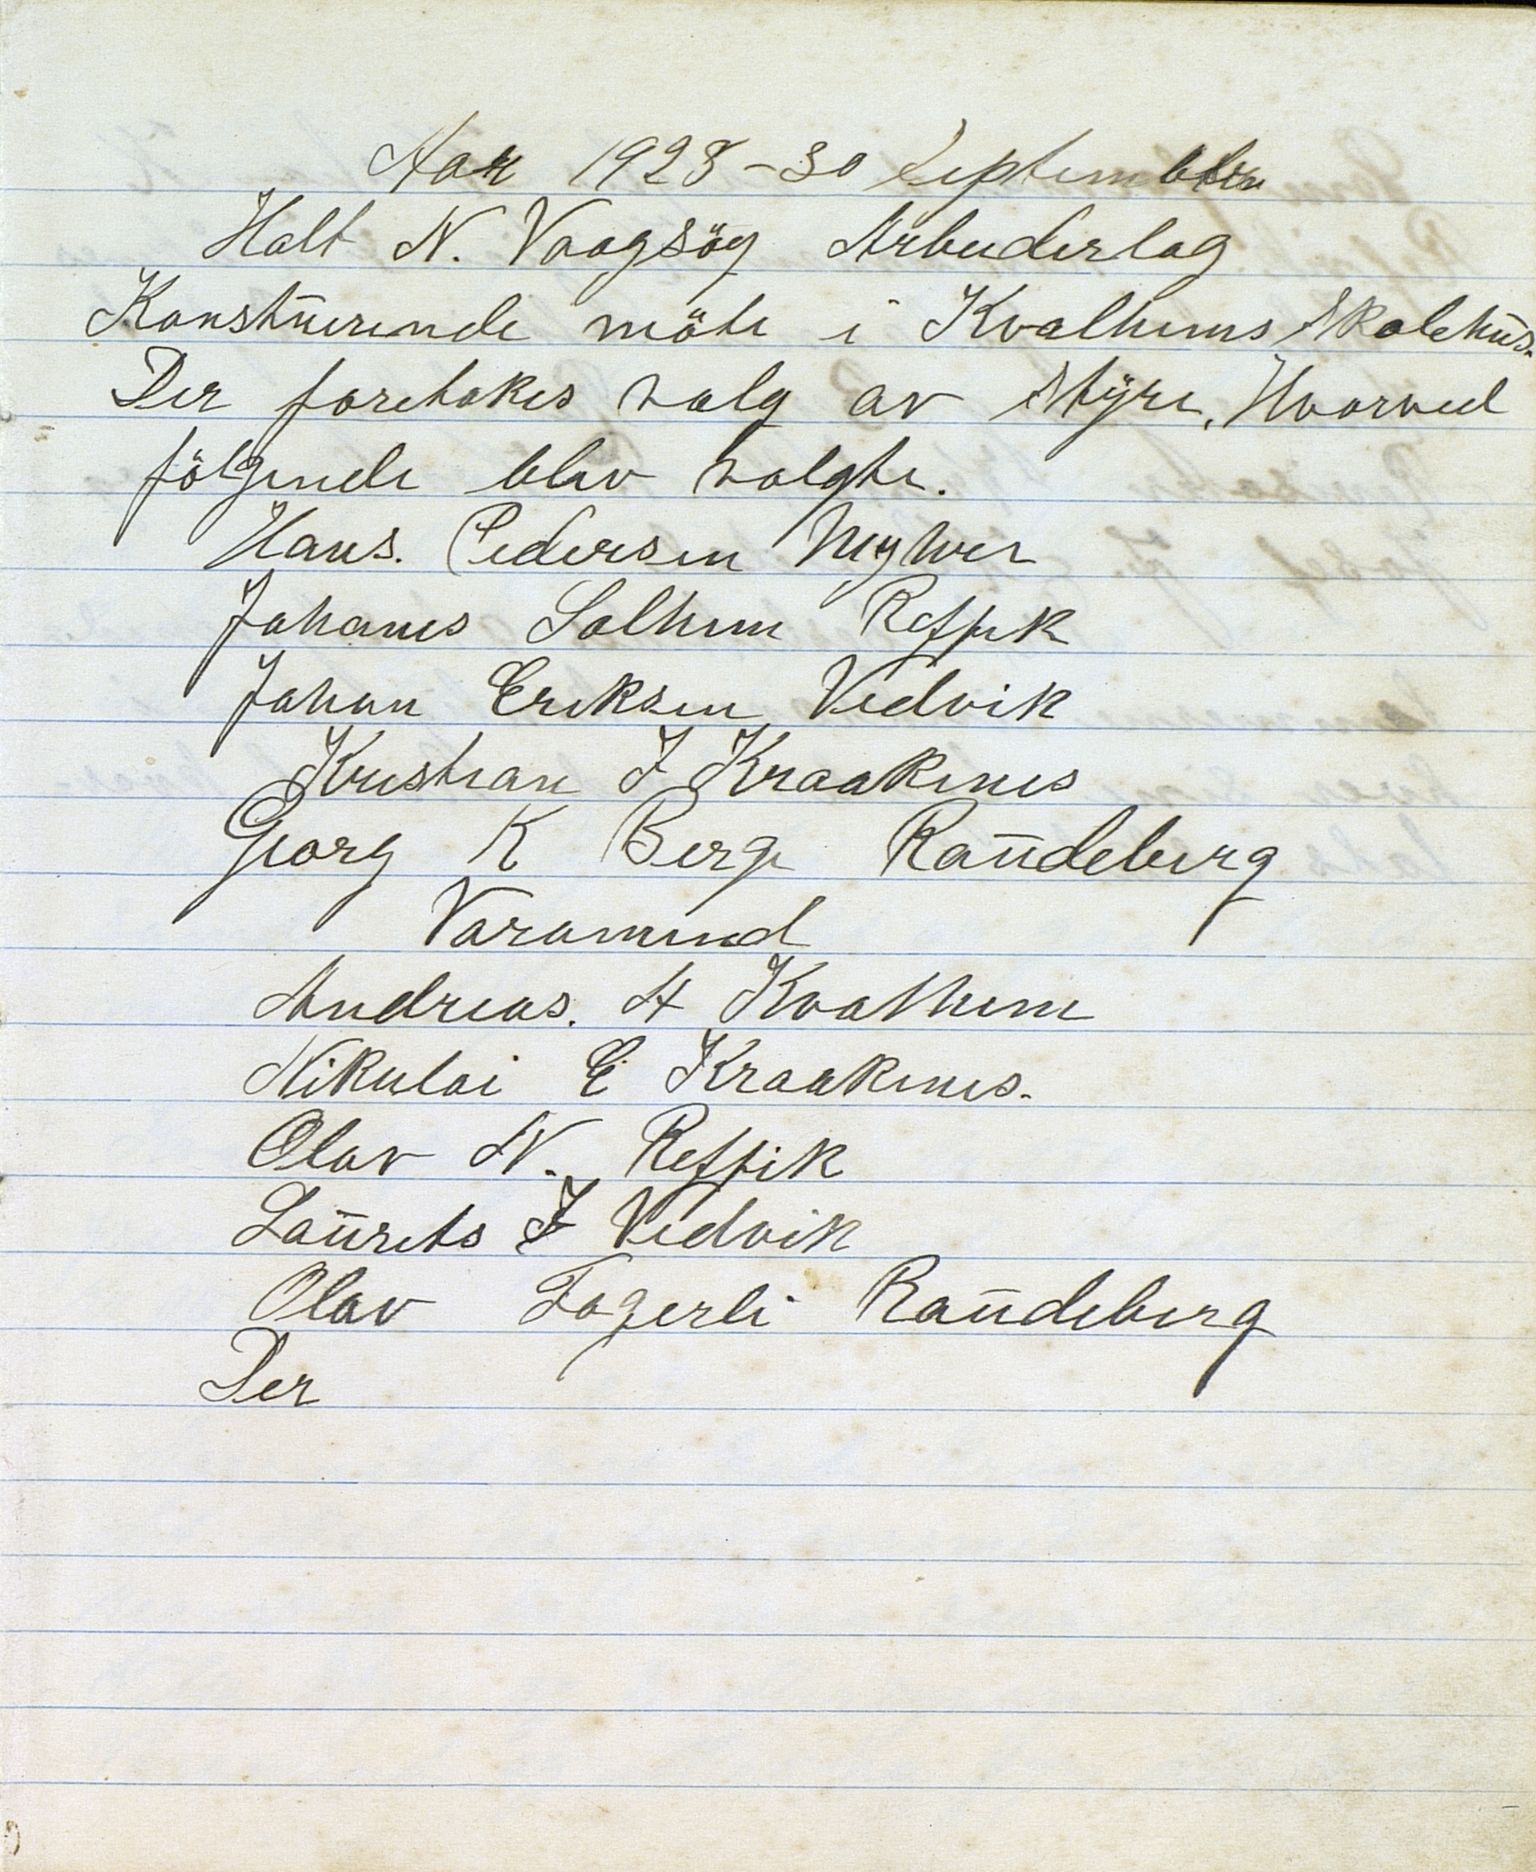 Aar 1928 – 30 September
Halt N. Vaagsöy Arbeiderlag
Konstuerende möte i Kvalheims Skolehus.
Der foretokes valg av Styre, Hvorved
fölgende blev valgte.
Hans. Pedersen
Johanes Solheim Refvik
Johan Eriksen Vedvik
Kristian J Kraakenes
Georg K Berge Raudeberg
Varamend
Andreas. A Kvalheim
Nikulai E Kraakenes.
Olav N. Refvik
Laurets J Vedvik
Olav Fagerli Raudeberg
Der